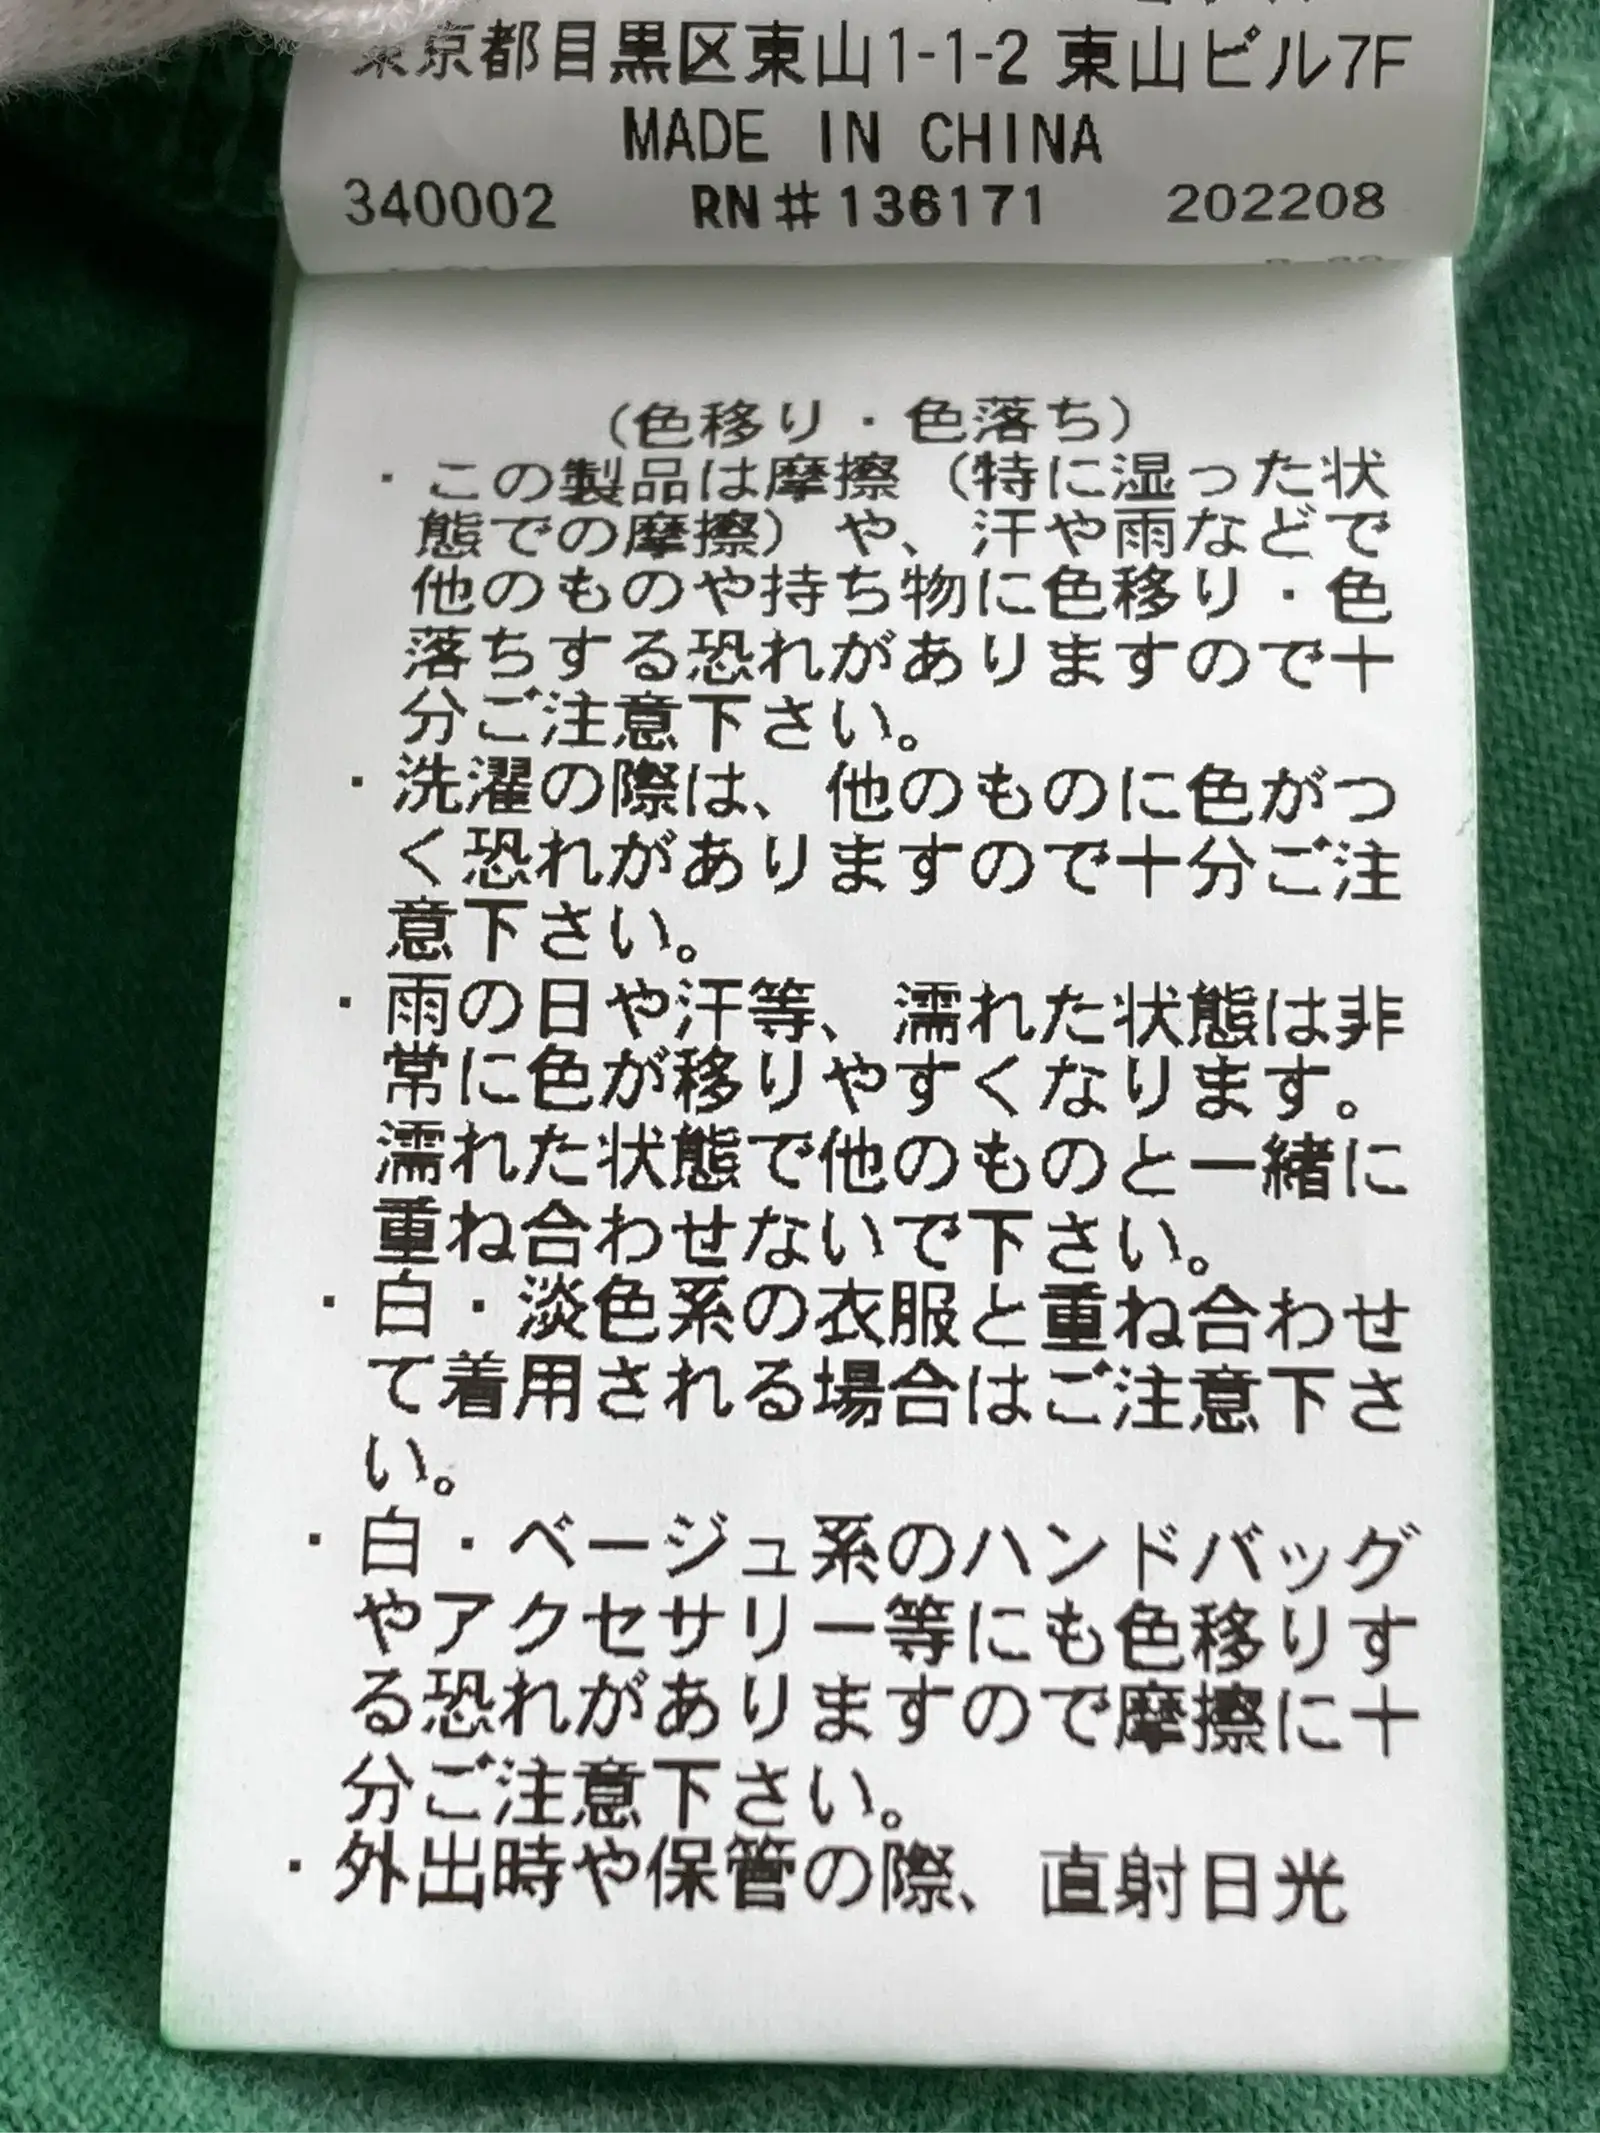 東京都目黒区東山1-1-2 東山ビル7F
MADE IN CHINA
340002 RN#136171 202208
(色移り・色落ち)
・この製品は摩擦(特に湿った状
態での摩擦)や、汗や雨などで
他のものや持ち物に色移り・色
落ちする恐れがありますので十
分ご注意下さい。
・洗濯の際は、他のものに色がつ
く恐れがありますので十分ご注
意下さい。
・雨の日や汗等、濡れた状態は非
常に色が移りやすくなります。
濡れた状態で他のものと一緒に
重ね合わせないで下さい。
・白・淡色系の衣服と重ね合わせ
て着用される場合はご注意下さ
い。
・白・ベージュ系のハンドバッグ
やアクセサリー等にも色移りす
る恐れがありますので摩擦に十
分ご注意下さい。
・外出時や保管の際、直射日光